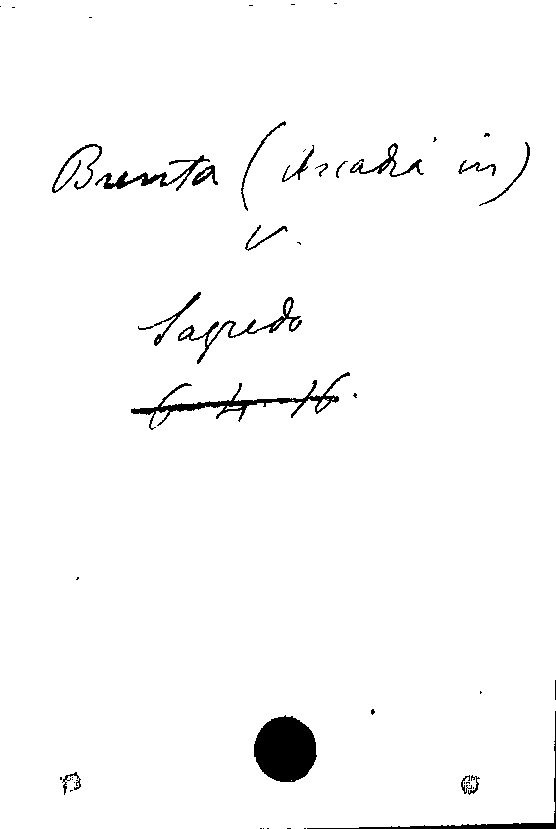 Brenta (Arcadia in)
V.
Sagredo
6.4.16.